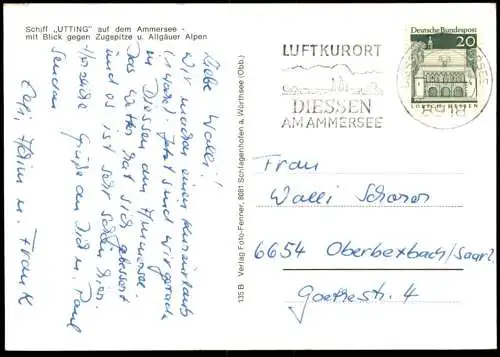 Schiff „UTTING" auf dem Ammersee -
mit Blick gegen Zugspitze u. Allgäuer Alpen
Liebe Walli!
Wir machen einen Kurzurlaub
(1 Woche). Jetzt sind wir gerade
in Diessen am Ammersee.
Das Wetter hat sich gebessert
und es ist sehr schön hier.
Grüße an Dich u. Paul
senden
Heim u. Frank
135 B Verlag Foto-Fenner, 8081 Schlagenhofen a. Wörthsee (Obb.)
LUFTKURORT
DIESSEN
AM AMMERSEE
Deutsche Bundespost
20
LORSCH/HESSEN
8918
Frau
Walli Scherer
6654 Oberbexbach/Saarl.
Goethestr. 4